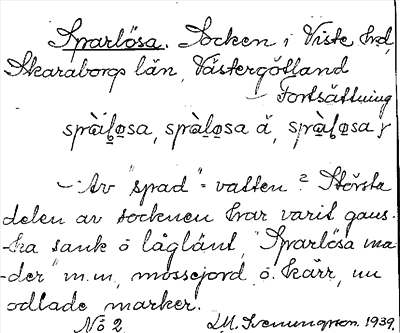 Sparlösa. Socken i Viste hrd,
Skaraborgs län, Västergötland
— Fortsättning
spàḷo̱sa, spàḷo̱sa å, spàḷo̱sa
— Av "spad" = vatten? Största
delen av socknen har varit gans-
-ka sank o låglänt, "Sparlösa ma-
-der" m.m, mossejord o. kärr, nu
odlade marker.
No 2. I.M. Svenungson. 1939.